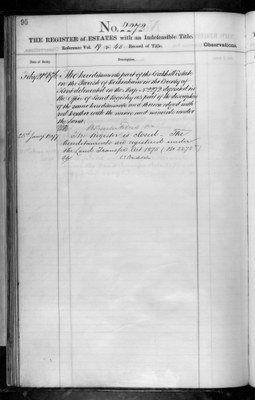 98
No. 2272
THE REGISTER of ESTATES with an Indefeasible Title.
Reference Vol. 19 Record of Title.
Observations.
Date of Entry.
Description.
July 1876 The hereditaments part of the Oakhill Estate
in the Parish of Tonbridge in the County of
Kent delineated on the Map No 2272 deposited in
the Office of Land Registry as part of the description
of the same hereditaments and thereon edged with
red together with the mines and minerals under
the same.
25th January 1877 The Register is closed. The
hereditaments are registered under
the Land Transfer Act 1875